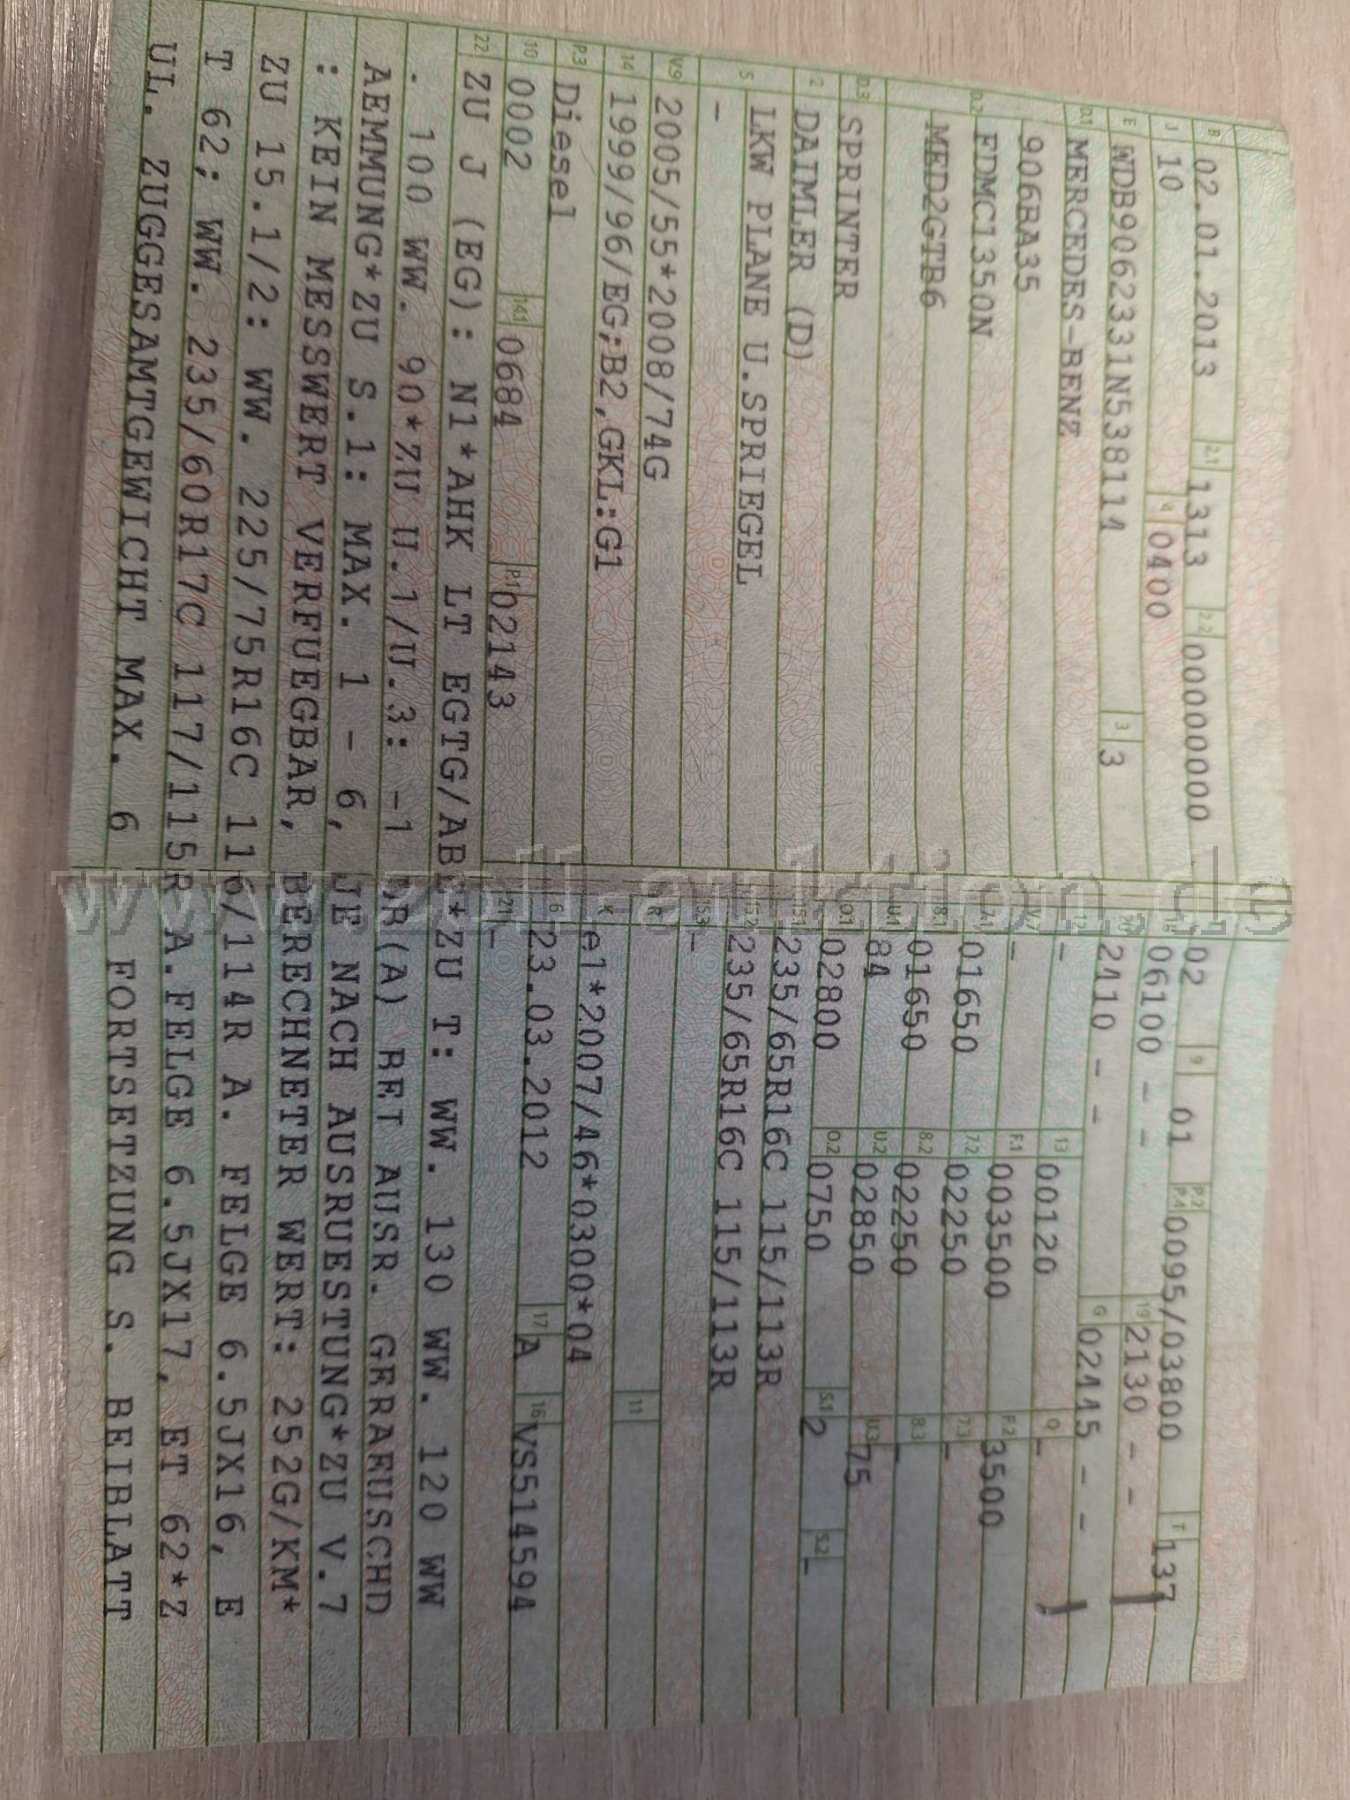 B 02.01.2013 2.1 1313 2.2 00000000
J 10 4 0400
E WDB9062331N538114 3 3
D.1 MERCEDES-BENZ
D.2 906BA35
FDMC1350N
MED2GTB6
D.3 SPRINTER
2 DAIMLER (D)
5 LKW PLANE U.SPRIEGEL
-
V.9 2005/55*2008/74G
14 1999/96/EG;B2,GKL:G1
P.3 Diesel
10 0002 14.1 0684 P.1 02143
02 9 01 P.2 P.4 0095/03800 T 137
18 06100 - - 19 2130 - -
20 2410 - - G 02445 - -
12 - 13 00120 Q -
V.7 - F.1 003500 F.2 3500
7.1 01650 7.2 02250 7.3 -
8.1 01650 8.2 02250 8.3 -
U.1 84 U.2 02850 U.3 75
O.1 02800 O.2 0750 S.1 2 S.2 -
15.1 235/65R16C 115/113R
15.2 235/65R16C 115/113R
15.3 -
R 11
K e1*2007/46*0300*04
6 23.03.2012 17 A 16 VS514594
21 -
22 ZU J (EG): N1*AHK LT EGTG/ABE*ZU T: WW. 130 WW. 120 WW
. 100 WW. 90*ZU U.1/U.3: -1 DR(A) BEI AUSR. GERAEUSCHD
AEMMUNG*ZU S.1: MAX. 1 - 6, JE NACH AUSRUESTUNG*ZU V.7
: KEIN MESSWERT VERFUEGBAR, BERECHNETER WERT: 252G/KM*
ZU 15.1/2: WW. 225/75R16C 116/114R A. FELGE 6.5JX16, E
T 62; WW. 235/60R17C 117/115R A.FELGE 6.5JX17, ET 62*Z
UL. ZUGGESAMTGEWICHT MAX. 6 FORTSETZUNG S. BEIBLATT
www.zoll-auktion.de